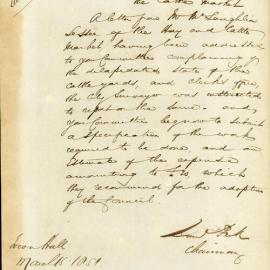 the Cattle Market
A letter from Mr McLaughlin
Lessee of the Hay and Cattle
Market having been addressed
to your Committee complaining of
the delapidated state of the
cattle yards, and
the City Surveyor was instructed
to report on the same - and
your Committee beg now to submit
a specification of the work
required to be done, and an
estimate of the expense
amounting to which
they recommend for the adoption
of the Council.
Chairman
Town Hall
March 1851.